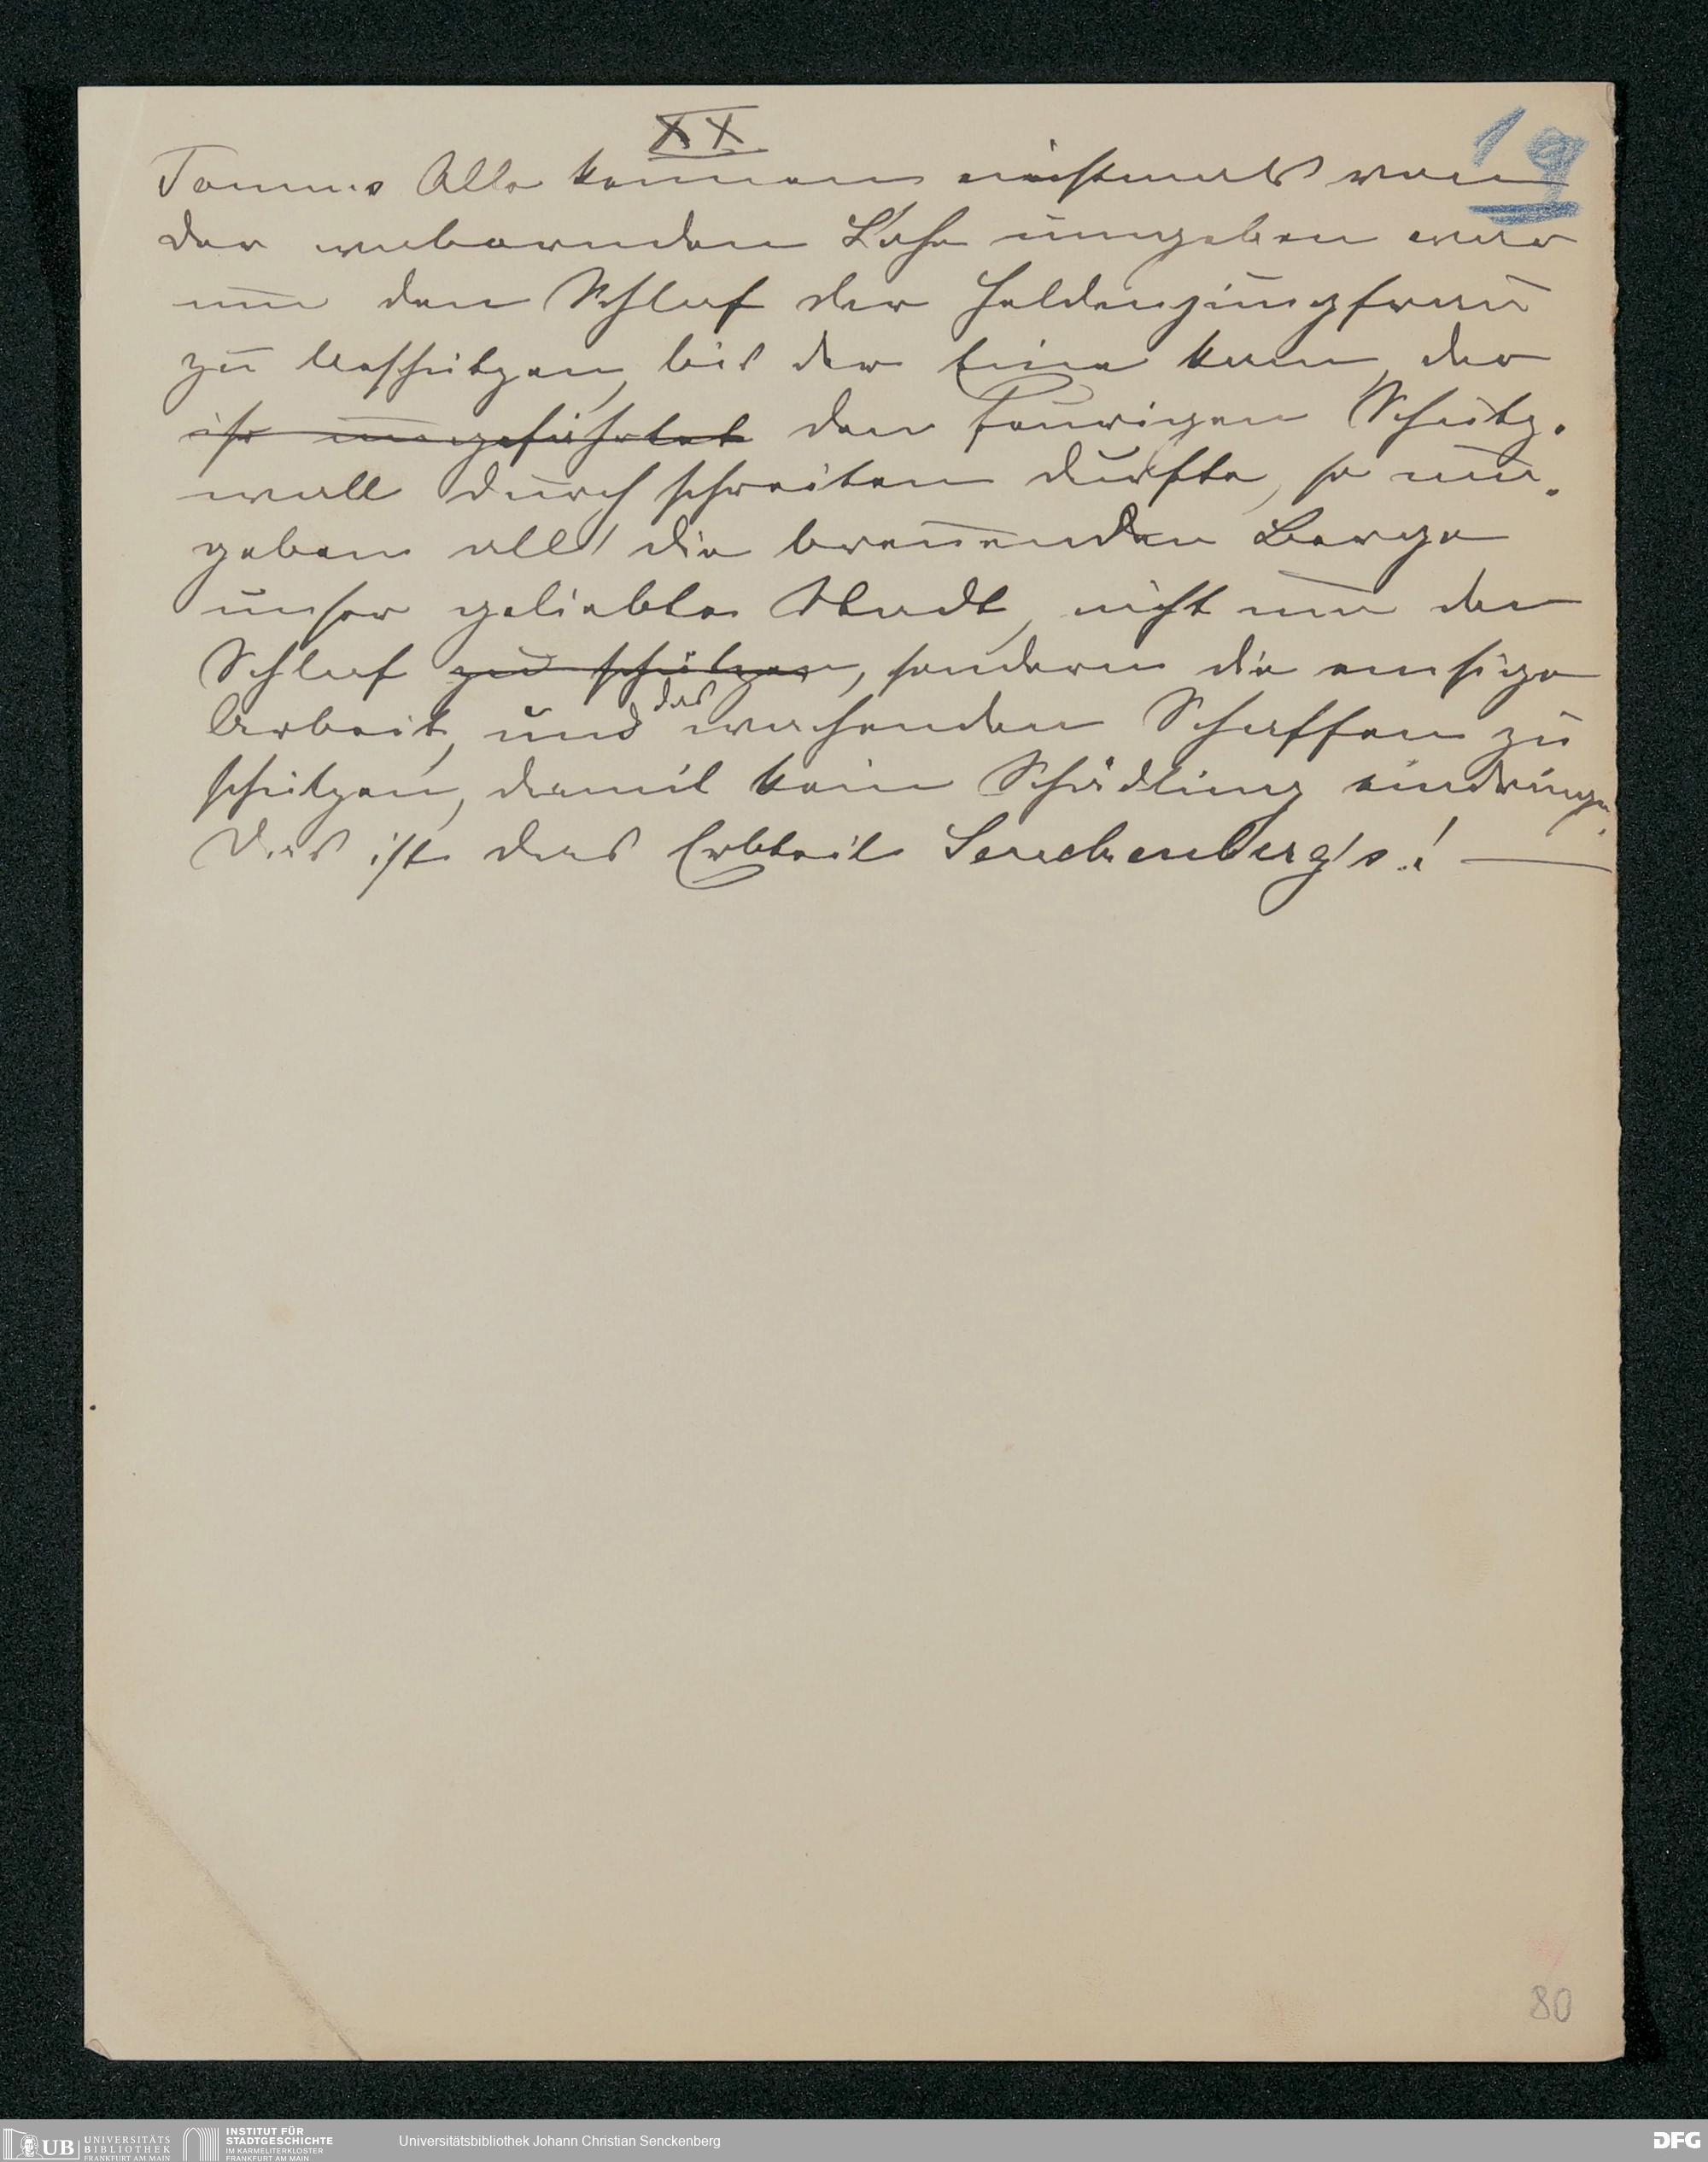 XX
19
Taunus Alle kennen einstmals von
der wabernden Lohe umgeben war
um den Schlaf der Heldenjungfrau
zu beschützen, bis der Eine kam, der
ihr den feurigen Schutz-
wall durchschreiten durfte, so um-
geben all' die brennenden Berge
unser geliebte Stadt, nicht um den
Schlaf zu schützen, sondern die emsige
Arbeit, und das wachenden Schaffen zu
schützen, damit kein Schädling eindringe.
Das ist das Erbteil Senckenberg's! —
80
UB UNIVERSITÄTS BIBLIOTHEK FRANKFURT AM MAIN
INSTITUT FÜR STADTGESCHICHTE IM KARMELITERKLOSTER FRANKFURT AM MAIN
Universitätsbibliothek Johann Christian Senckenberg
DFG